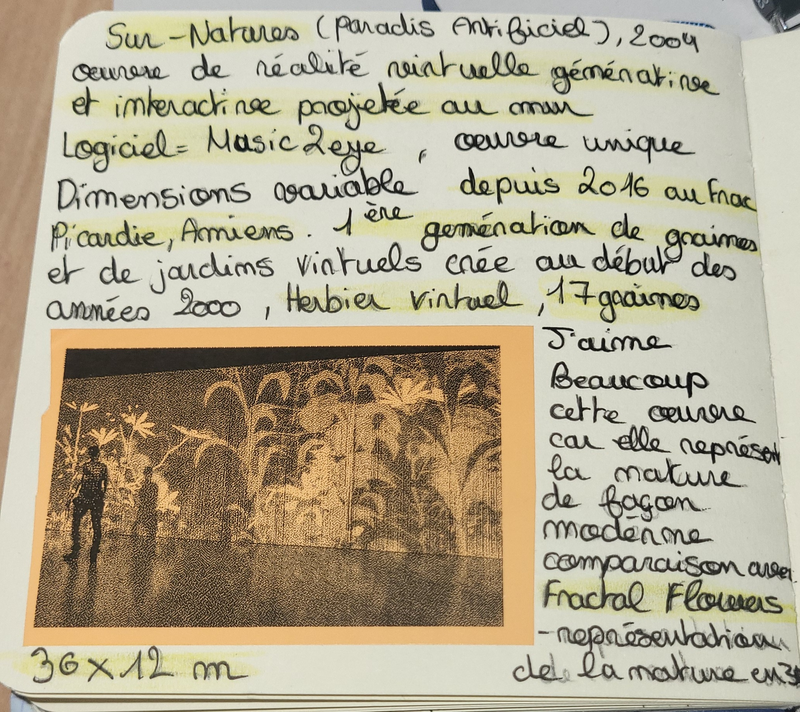 Sur-Natures (Paradis Artificiel), 2004
œuvre de réalité virtuelle générative
et interactive projetée au mur
Logiciel = Music2eye, œuvre unique
Dimensions variable depuis 2016 au Frac
Picardie, Amiens. 1ère génération de graines
et de jardins virtuels crée au début des
années 2000, Herbier virtuel, 17 graines
J'aime
Beaucoup
cette œuvre
car elle représent
la nature
de façon
moderne
comparaison avec
Fractal Flowers
-représentation
de la nature en 3
36 x 12 m